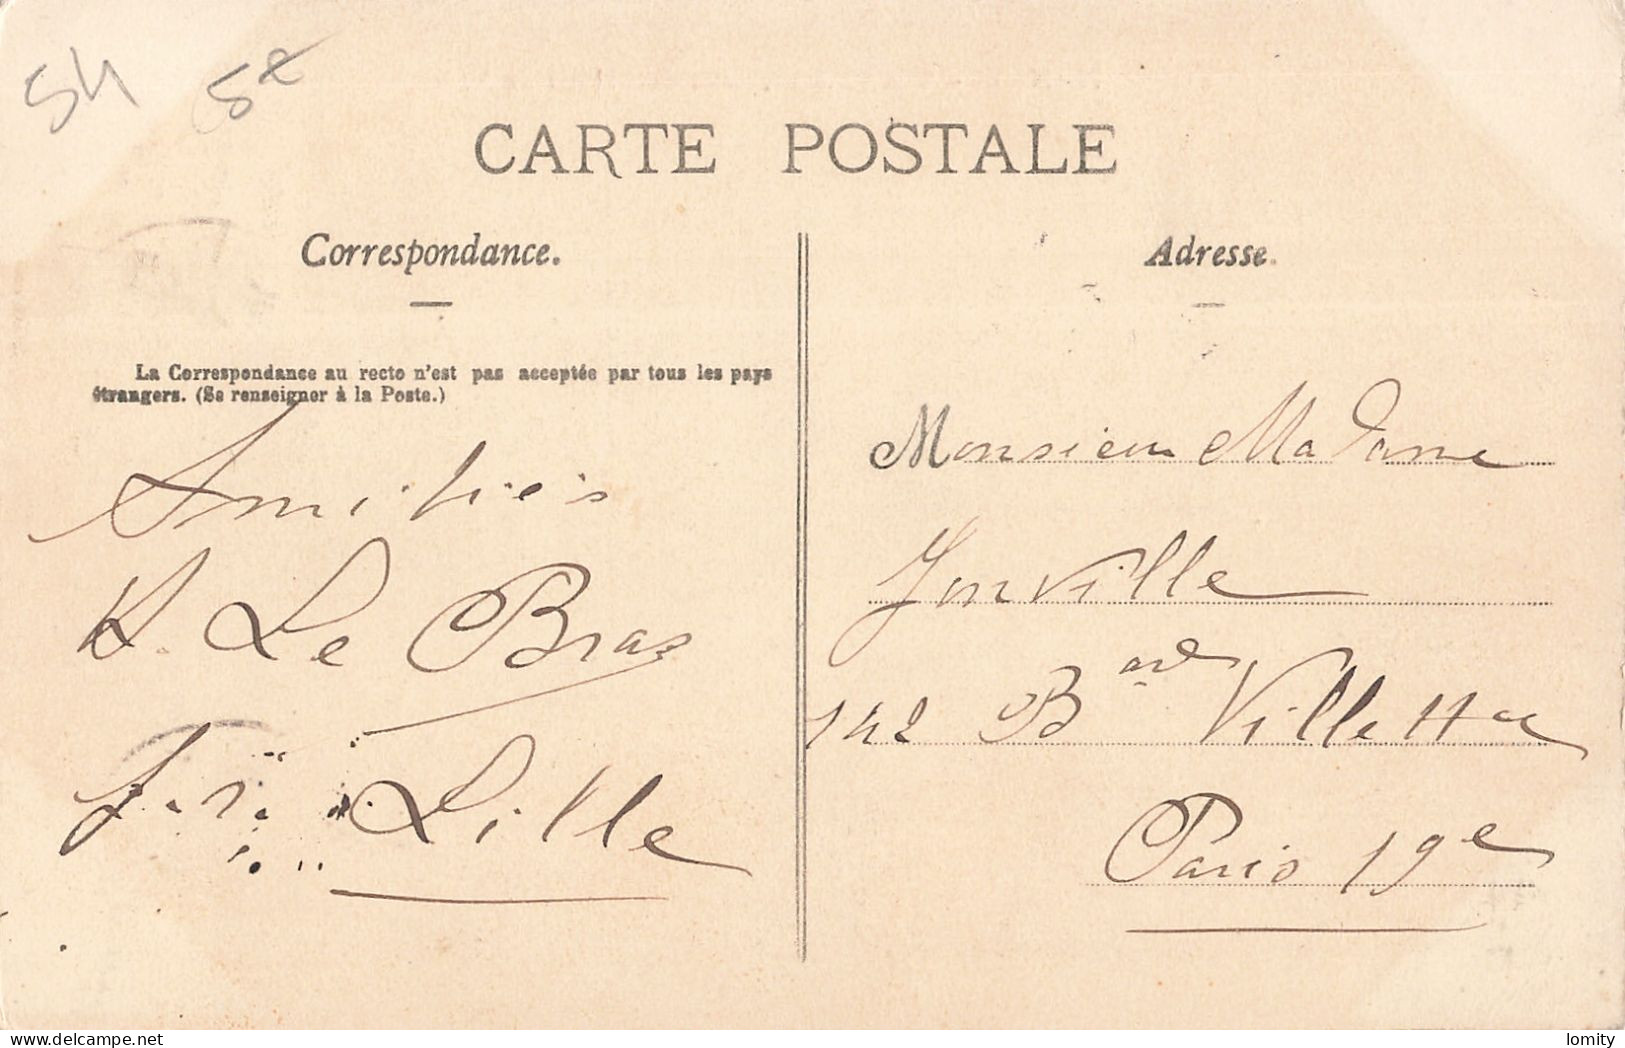 54 5e
CARTE POSTALE
Correspondance.
La Correspondance au recto n'est pas acceptée par tous les pays
étrangers. (Se renseigner à la Poste.)
Amitiés
Le Bras
Lille
Adresse.
Monsieur Madame
Jonville
142 Bard Villette
Paris 19e
lomity